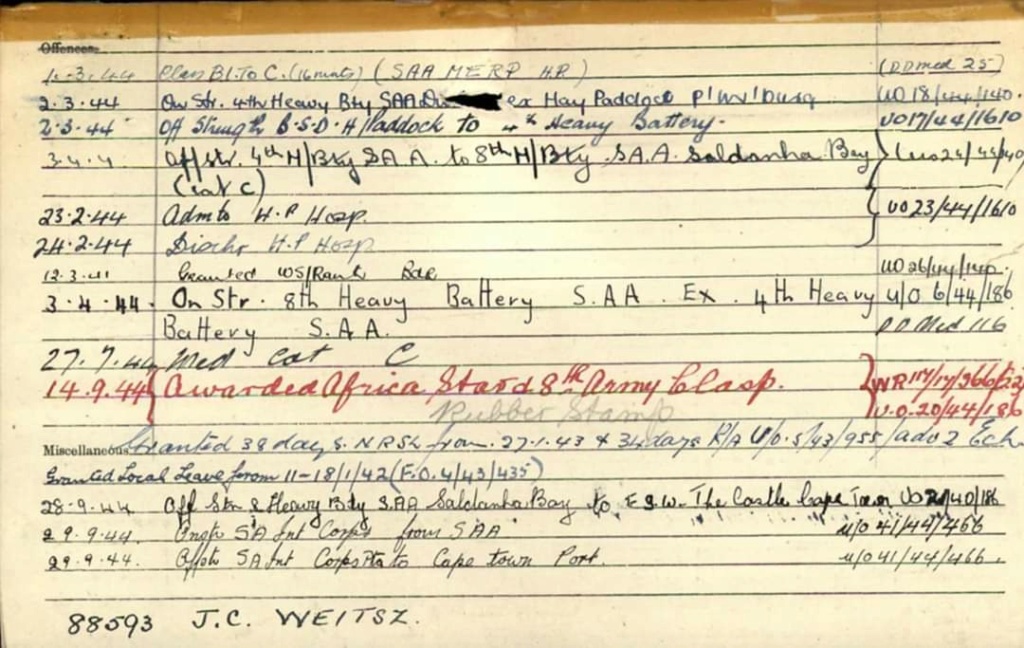 Offences
Class B1. To C. (16 mnts) (SAA MERP H.P.) (DDmed 25)
2.3.44 On Str. 4th Heavy Bty SAA ex Hay Paddock UO 18/44/140.
2.3.44 Off Strength B.S.D. H/Paddock to 4th Heavy Battery. UO17/44/1610
Off Str. 4th H/Bty S.A.A. to 8th H/Bty. S.A.A. Saldanha Bay
(Cat C)
23.2.44 Adm to H.P Hosp. UO23/44/1610
24.2.44 Dischr H.P Hosp
Granted WS/Rank Bdr UO 26/44/140.
3.4.44. On Str. 8th Heavy Battery S.A.A. Ex. 4th Heavy U/O 6/44/186
Battery S.A.A. DD Med 116
27.7.44 Med Cat C
14.9.44 Awarded Africa Star & 8th Army Clasp.
Rubber Stamp U.O.20/44/186
Miscellaneous Granted 38 days NRSL from 27.1.43 & 34 days
Granted Local Leave from 11-18/1/42 (F.O. 4/43/435)
28.9.44 Off Str 8 Heavy Bty SAA Saldanha Bay to E.S.W. The Castle Cape Town
29.9.44. Transf SA Int Corps from SAA u/o 41/44/466
29.9.44. SA Int Corps to Cape town Port. u/o 41/44/466.
88593 J.C. WEITSZ.